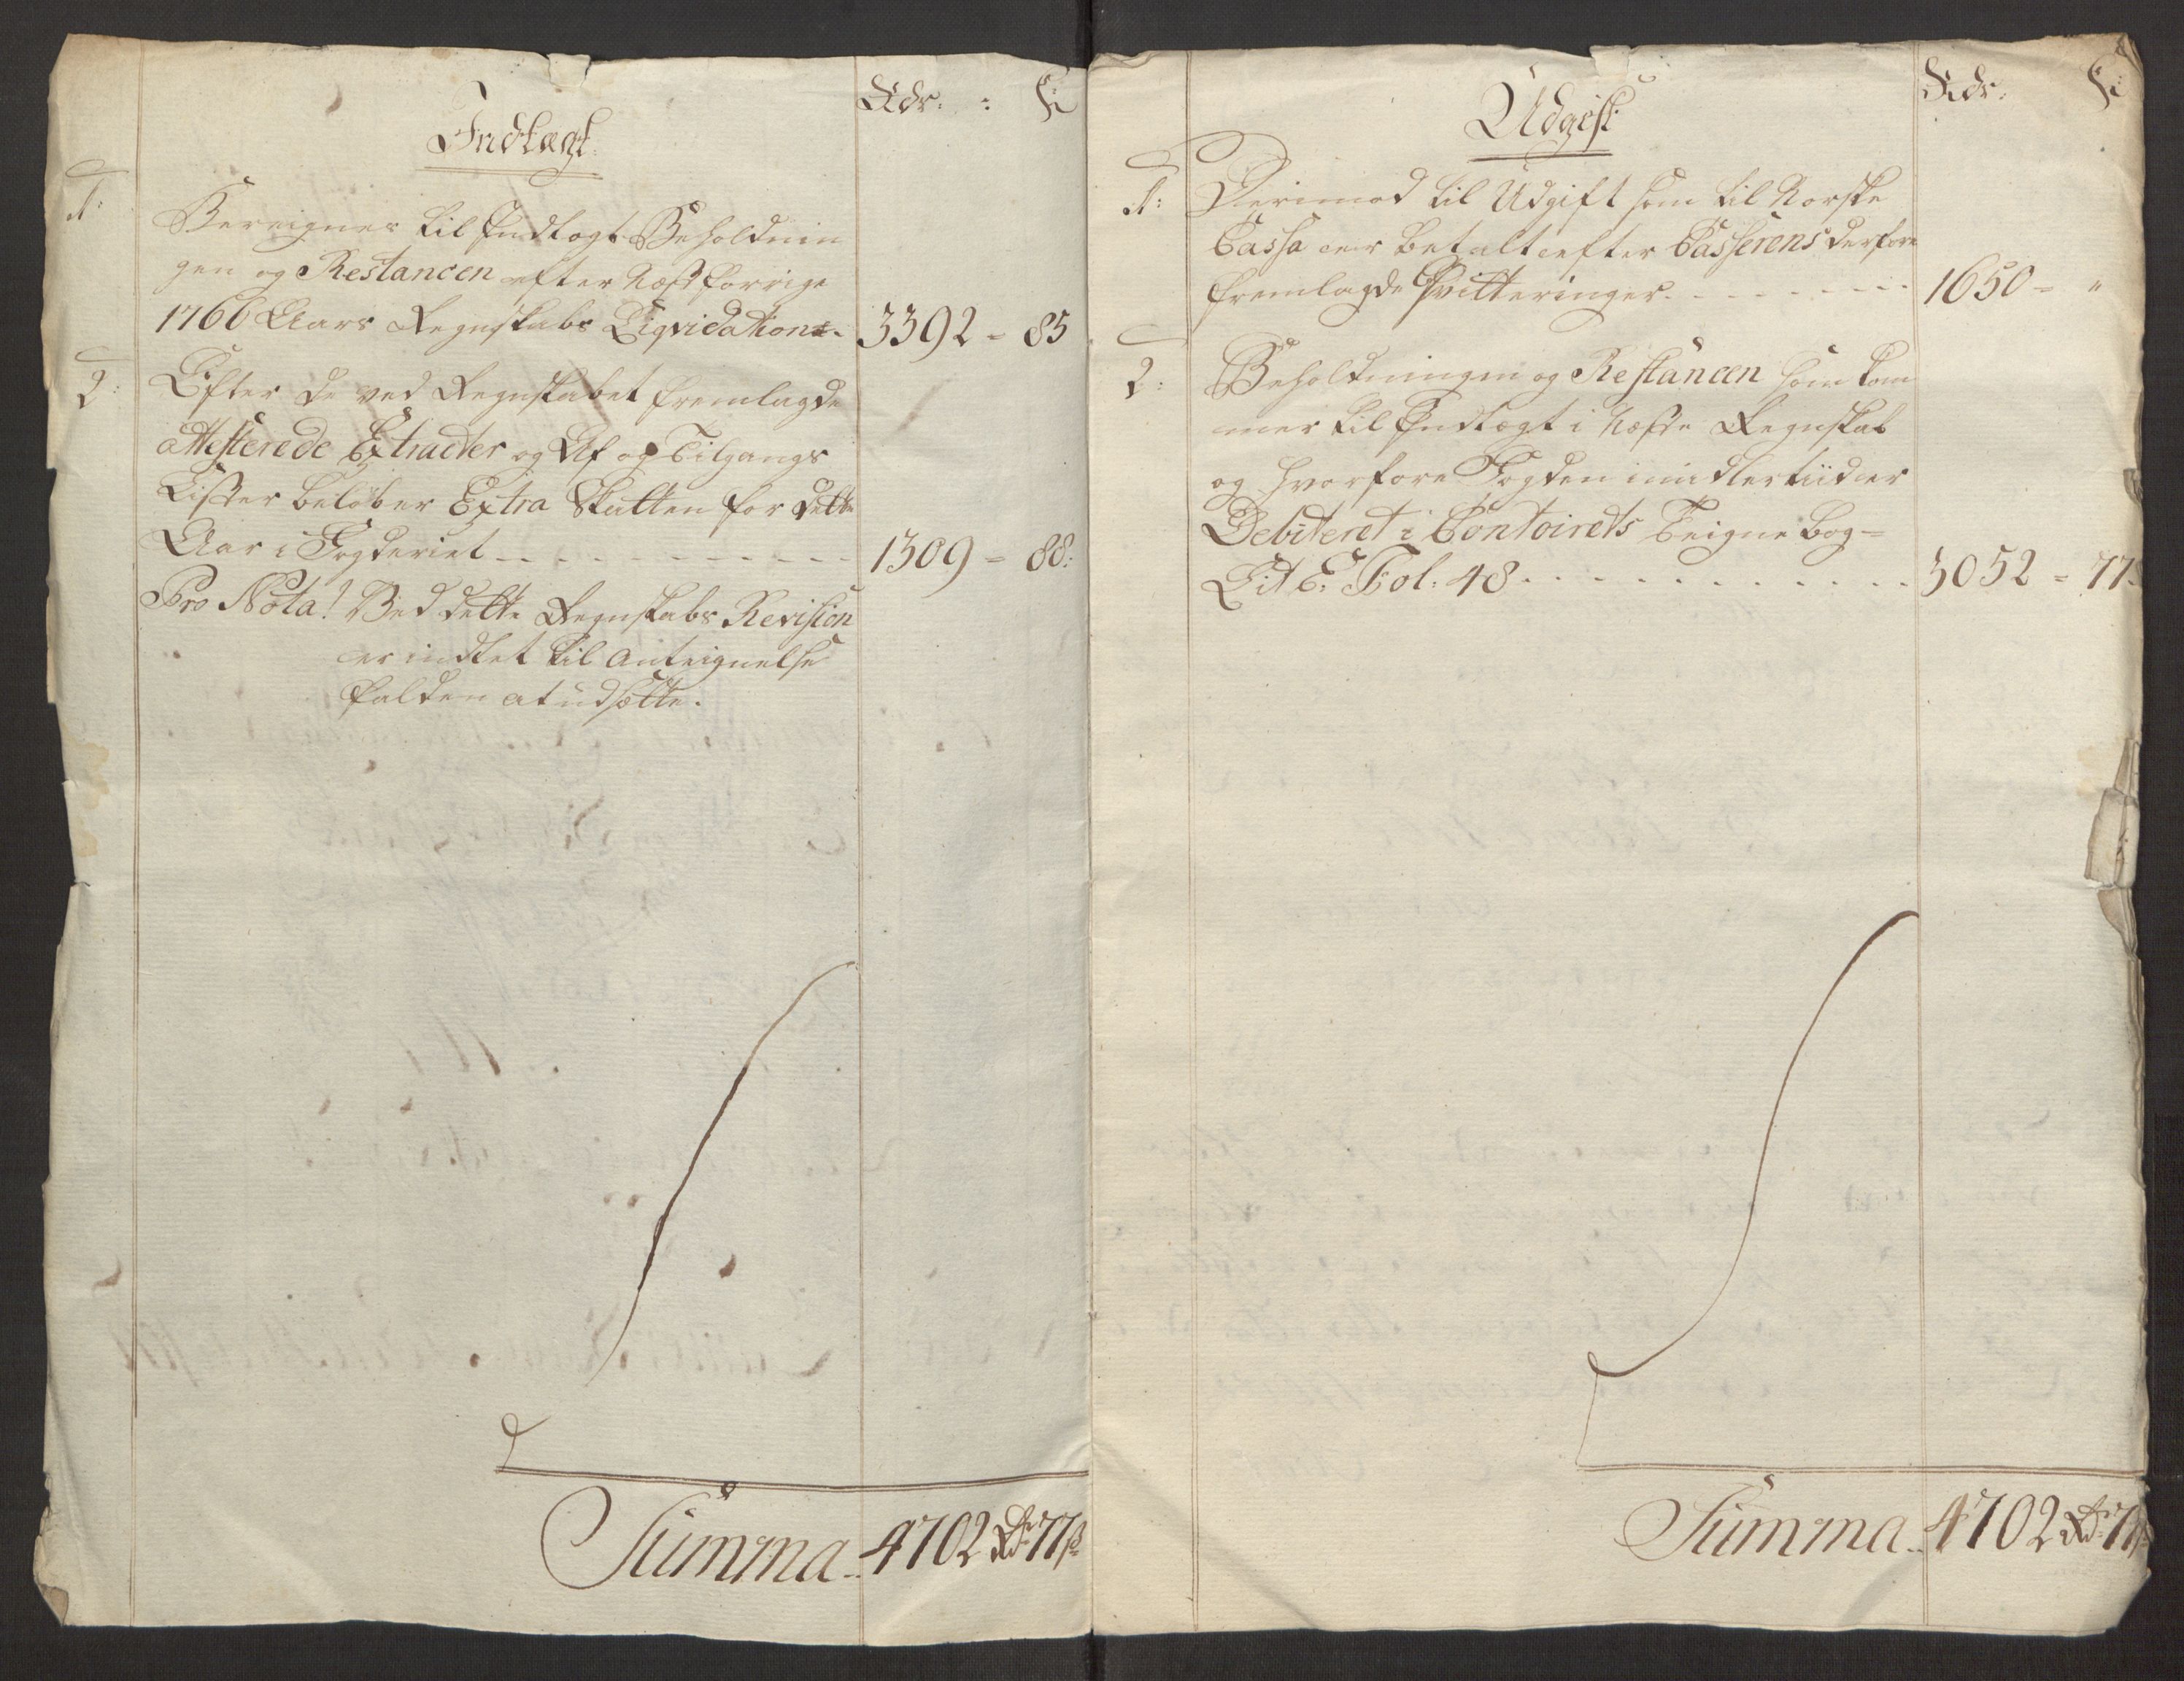 Rdr: : ß
Indtægt
1:
Bereignes til Indtægt Beholdnin
gen og Restancen efter næst forrige
1766 Aars Regnskabs Liqvidation - 3392 = 85
2: Efter de ved Regnskabet fremlagde
attesterede Extracter og Af og Tilgangs
Lister beløber Extra Skatten for dette
Aar i Fogderiet - - - - - - - - - 1309 = 88:
Pro Nota! Ved dette Regnskabs Revision
er indtet til Anteignelse
falden at udsætte.
Summa .. 4702 Rdr 77 ß
Rdr: ß
Udgift
1: Derimod til Udgift som til Norske
Cassa er betalt efter Casserens derfore
fremlagde Qvitteringer. - - - - - - - 1650 = "
2: Beholdningen og Restancen som kom
mer til Indtægt i næste Regnskab
og hvorfore Fogden imidlertiid er
Debiteret i Contoirets Teigne bog =
Lit E. Fol: 48 - - - - - - - - - - - 3052 = 77 -
Summa .. 4702 Rdr 77 ß